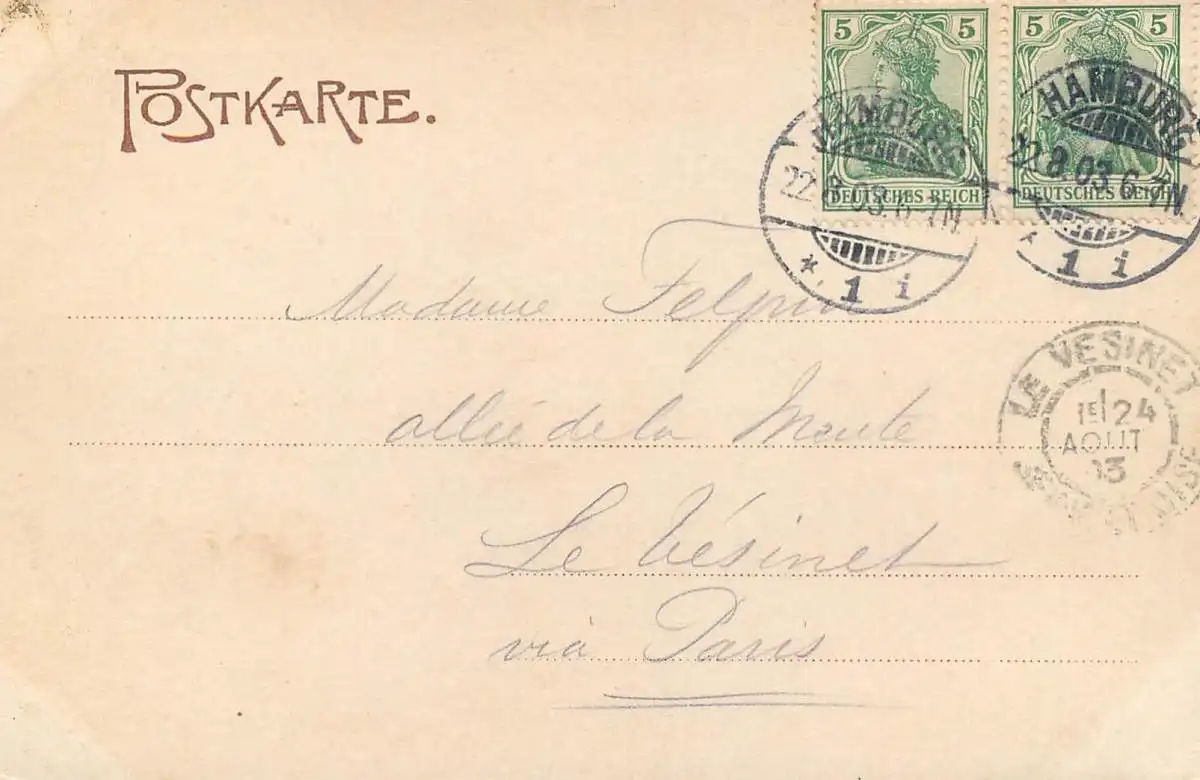 5 5 5 5
POSTKARTE.
HAMBURG HAMBURG
22.8.03.6-7N. 22.8.03.6-7N.
DEUTSCHES REICH DEUTSCHES REICH
* 1 i * 1 i
Madame
LE VESINET
1E 24
AOUT
allée de la Meute
Le Vésinet
via Paris